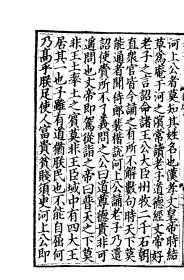 河上公者莫知其姓名也漢孝文皇帝時結
草為庵于河之濱常讀老子道德經文帝好
老子之言詔命諸王公大臣州牧二千石朝
直衆官皆令誦之有所不解數句時天下莫
能通者聞侍郎裴楷說河上公誦老子乃遣
詔使賫所不了義問之公曰道尊德貴非可
遙問也文帝即駕從詣之帝曰普天之下莫
非王土率土之賓莫非王臣域中有四大王
居其一也子雖有道猶朕民也不能自屈何
乃高乎朕足使人富貴貧賤須臾河上公即